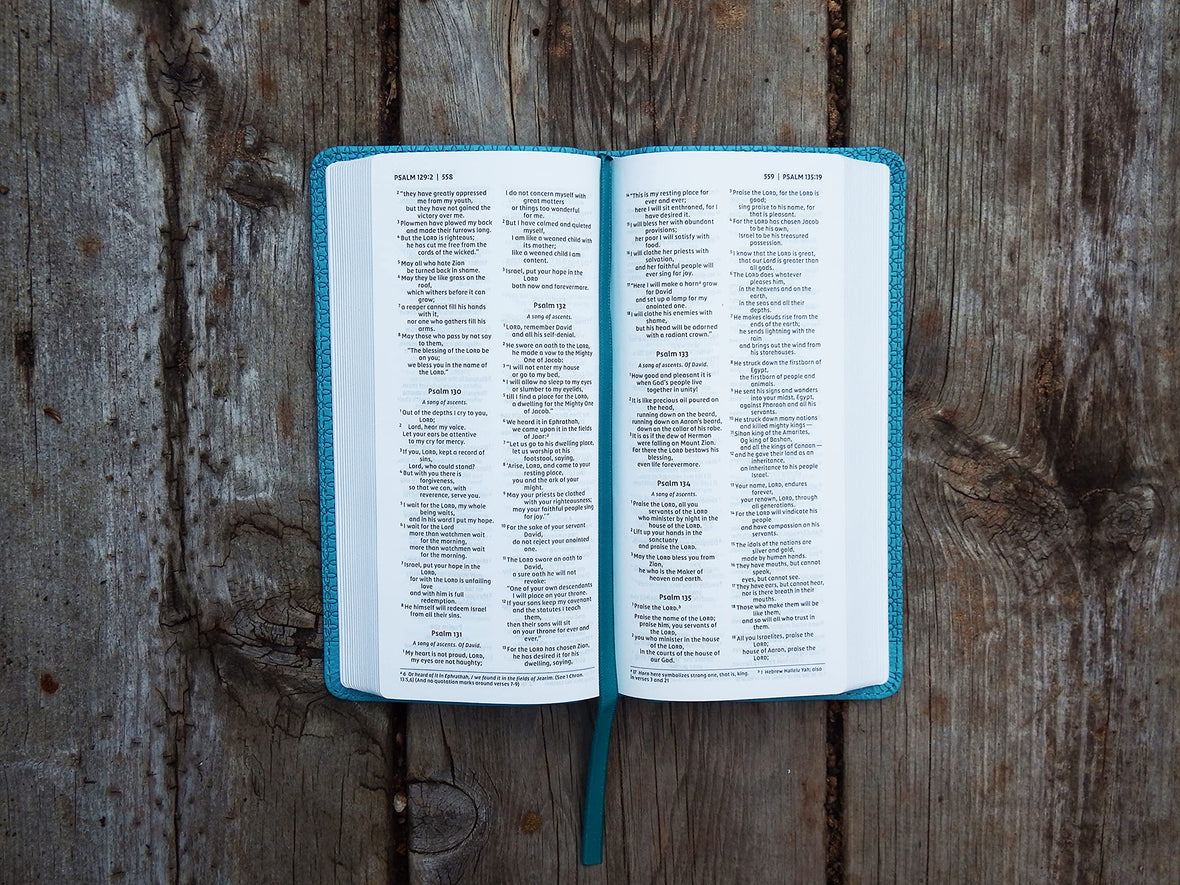 PSALM 129:2 | 558
² “they have greatly oppressed
me from my youth,
but they have not gained the
victory over me.
³ Plowmen have plowed my back
and made their furrows long.
⁴ But the LORD is righteous;
he has cut me free from the
cords of the wicked.”
⁵ May all who hate Zion
be turned back in shame.
⁶ May they be like grass on the
roof,
which withers before it can
grow;
⁷ a reaper cannot fill his hands
with it,
nor one who gathers fill his
arms.
⁸ May those who pass by not say
to them,
“The blessing of the LORD be
on you;
we bless you in the name of
the LORD.”
Psalm 130
A song of ascents.
¹ Out of the depths I cry to you,
LORD;
² Lord, hear my voice.
Let your ears be attentive
to my cry for mercy.
³ If you, LORD, kept a record of
sins,
Lord, who could stand?
⁴ But with you there is
forgiveness,
so that we can, with
reverence, serve you.
⁵ I wait for the LORD, my whole
being waits,
and in his word I put my hope.
⁶ I wait for the Lord
more than watchmen wait
for the morning,
more than watchmen wait
for the morning.
⁷ Israel, put your hope in the
LORD,
for with the LORD is unfailing
love
and with him is full
redemption.
⁸ He himself will redeem Israel
from all their sins.
Psalm 131
A song of ascents. Of David.
¹ My heart is not proud, LORD,
my eyes are not haughty;
I do not concern myself with
great matters
or things too wonderful
for me.
² But I have calmed and quieted
myself,
I am like a weaned child with
its mother;
like a weaned child I am
content.
³ Israel, put your hope in the
LORD
both now and forevermore.
Psalm 132
A song of ascents.
¹ LORD, remember David
and all his self-denial.
² He swore an oath to the LORD,
he made a vow to the Mighty
One of Jacob:
³ “I will not enter my house
or go to my bed,
⁴ I will allow no sleep to my eyes
or slumber to my eyelids,
⁵ till I find a place for the LORD,
a dwelling for the Mighty One
of Jacob.”
⁶ We heard it in Ephrathah,
we came upon it in the fields
of Jaar:ᵃ
⁷ “Let us go to his dwelling place,
let us worship at his
footstool, saying,
⁸ ‘Arise, LORD, and come to your
resting place,
you and the ark of your
might.
⁹ May your priests be clothed
with your righteousness;
may your faithful people sing
for joy.’”
¹⁰ For the sake of your servant
David,
do not reject your anointed
one.
¹¹ The LORD swore an oath to
David,
a sure oath he will not
revoke:
“One of your own descendants
I will place on your throne.
¹² If your sons keep my covenant
and the statutes I teach
them,
then their sons will sit
on your throne for ever and
ever.”
¹³ For the LORD has chosen Zion,
he has desired it for his
dwelling, saying,
ᵃ 6 Or heard of it in Ephrathah, / we found it in the fields of Jearim. (See 1 Chron.
13:5,6) (And no quotation marks around verses 7-9)
559 | PSALM 135:19
¹⁴ “This is my resting place for
ever and ever;
here I will sit enthroned, for I
have desired it.
¹⁵ I will bless her with abundant
provisions;
her poor I will satisfy with
food.
¹⁶ I will clothe her priests with
salvation,
and her faithful people will
ever sing for joy.
¹⁷ “Here I will make a hornᵃ grow
for David
and set up a lamp for my
anointed one.
¹⁸ I will clothe his enemies with
shame,
but his head will be adorned
with a radiant crown.”
Psalm 133
A song of ascents. Of David.
¹ How good and pleasant it is
when God’s people live
together in unity!
² It is like precious oil poured on
the head,
running down on the beard,
running down on Aaron’s beard,
down on the collar of his robe.
³ It is as if the dew of Hermon
were falling on Mount Zion.
For there the LORD bestows his
blessing,
even life forevermore.
Psalm 134
A song of ascents.
¹ Praise the LORD, all you
servants of the LORD
who minister by night in the
house of the LORD.
² Lift up your hands in the
sanctuary
and praise the LORD.
³ May the LORD bless you from
Zion,
he who is the Maker of
heaven and earth.
Psalm 135
¹ Praise the LORD.ᵇ
Praise the name of the LORD;
praise him, you servants of
the LORD,
² you who minister in the house
of the LORD,
in the courts of the house of
our God.
³ Praise the LORD, for the LORD is
good;
sing praise to his name, for
that is pleasant.
⁴ For the LORD has chosen Jacob
to be his own,
Israel to be his treasured
possession.
⁵ I know that the LORD is great,
that our Lord is greater than
all gods.
⁶ The LORD does whatever
pleases him,
in the heavens and on the
earth,
in the seas and all their
depths.
⁷ He makes clouds rise from the
ends of the earth;
he sends lightning with the
rain
and brings out the wind from
his storehouses.
⁸ He struck down the firstborn of
Egypt,
the firstborn of people and
animals.
⁹ He sent his signs and wonders
into your midst, Egypt,
against Pharaoh and all his
servants.
¹⁰ He struck down many nations
and killed mighty kings —
¹¹ Sihon king of the Amorites,
Og king of Bashan,
and all the kings of Canaan —
¹² and he gave their land as an
inheritance,
an inheritance to his people
Israel.
¹³ Your name, LORD, endures
forever,
your renown, LORD, through
all generations.
¹⁴ For the LORD will vindicate his
people
and have compassion on his
servants.
¹⁵ The idols of the nations are
silver and gold,
made by human hands.
¹⁶ They have mouths, but cannot
speak,
eyes, but cannot see.
¹⁷ They have ears, but cannot hear,
nor is there breath in their
mouths.
¹⁸ Those who make them will be
like them,
and so will all who trust in
them.
¹⁹ All you Israelites, praise the
LORD;
house of Aaron, praise the
LORD;
ᵃ 17 Horn here symbolizes strong one, that is, king. ᵇ 1 Hebrew Hallelu Yah; also
in verses 3 and 21